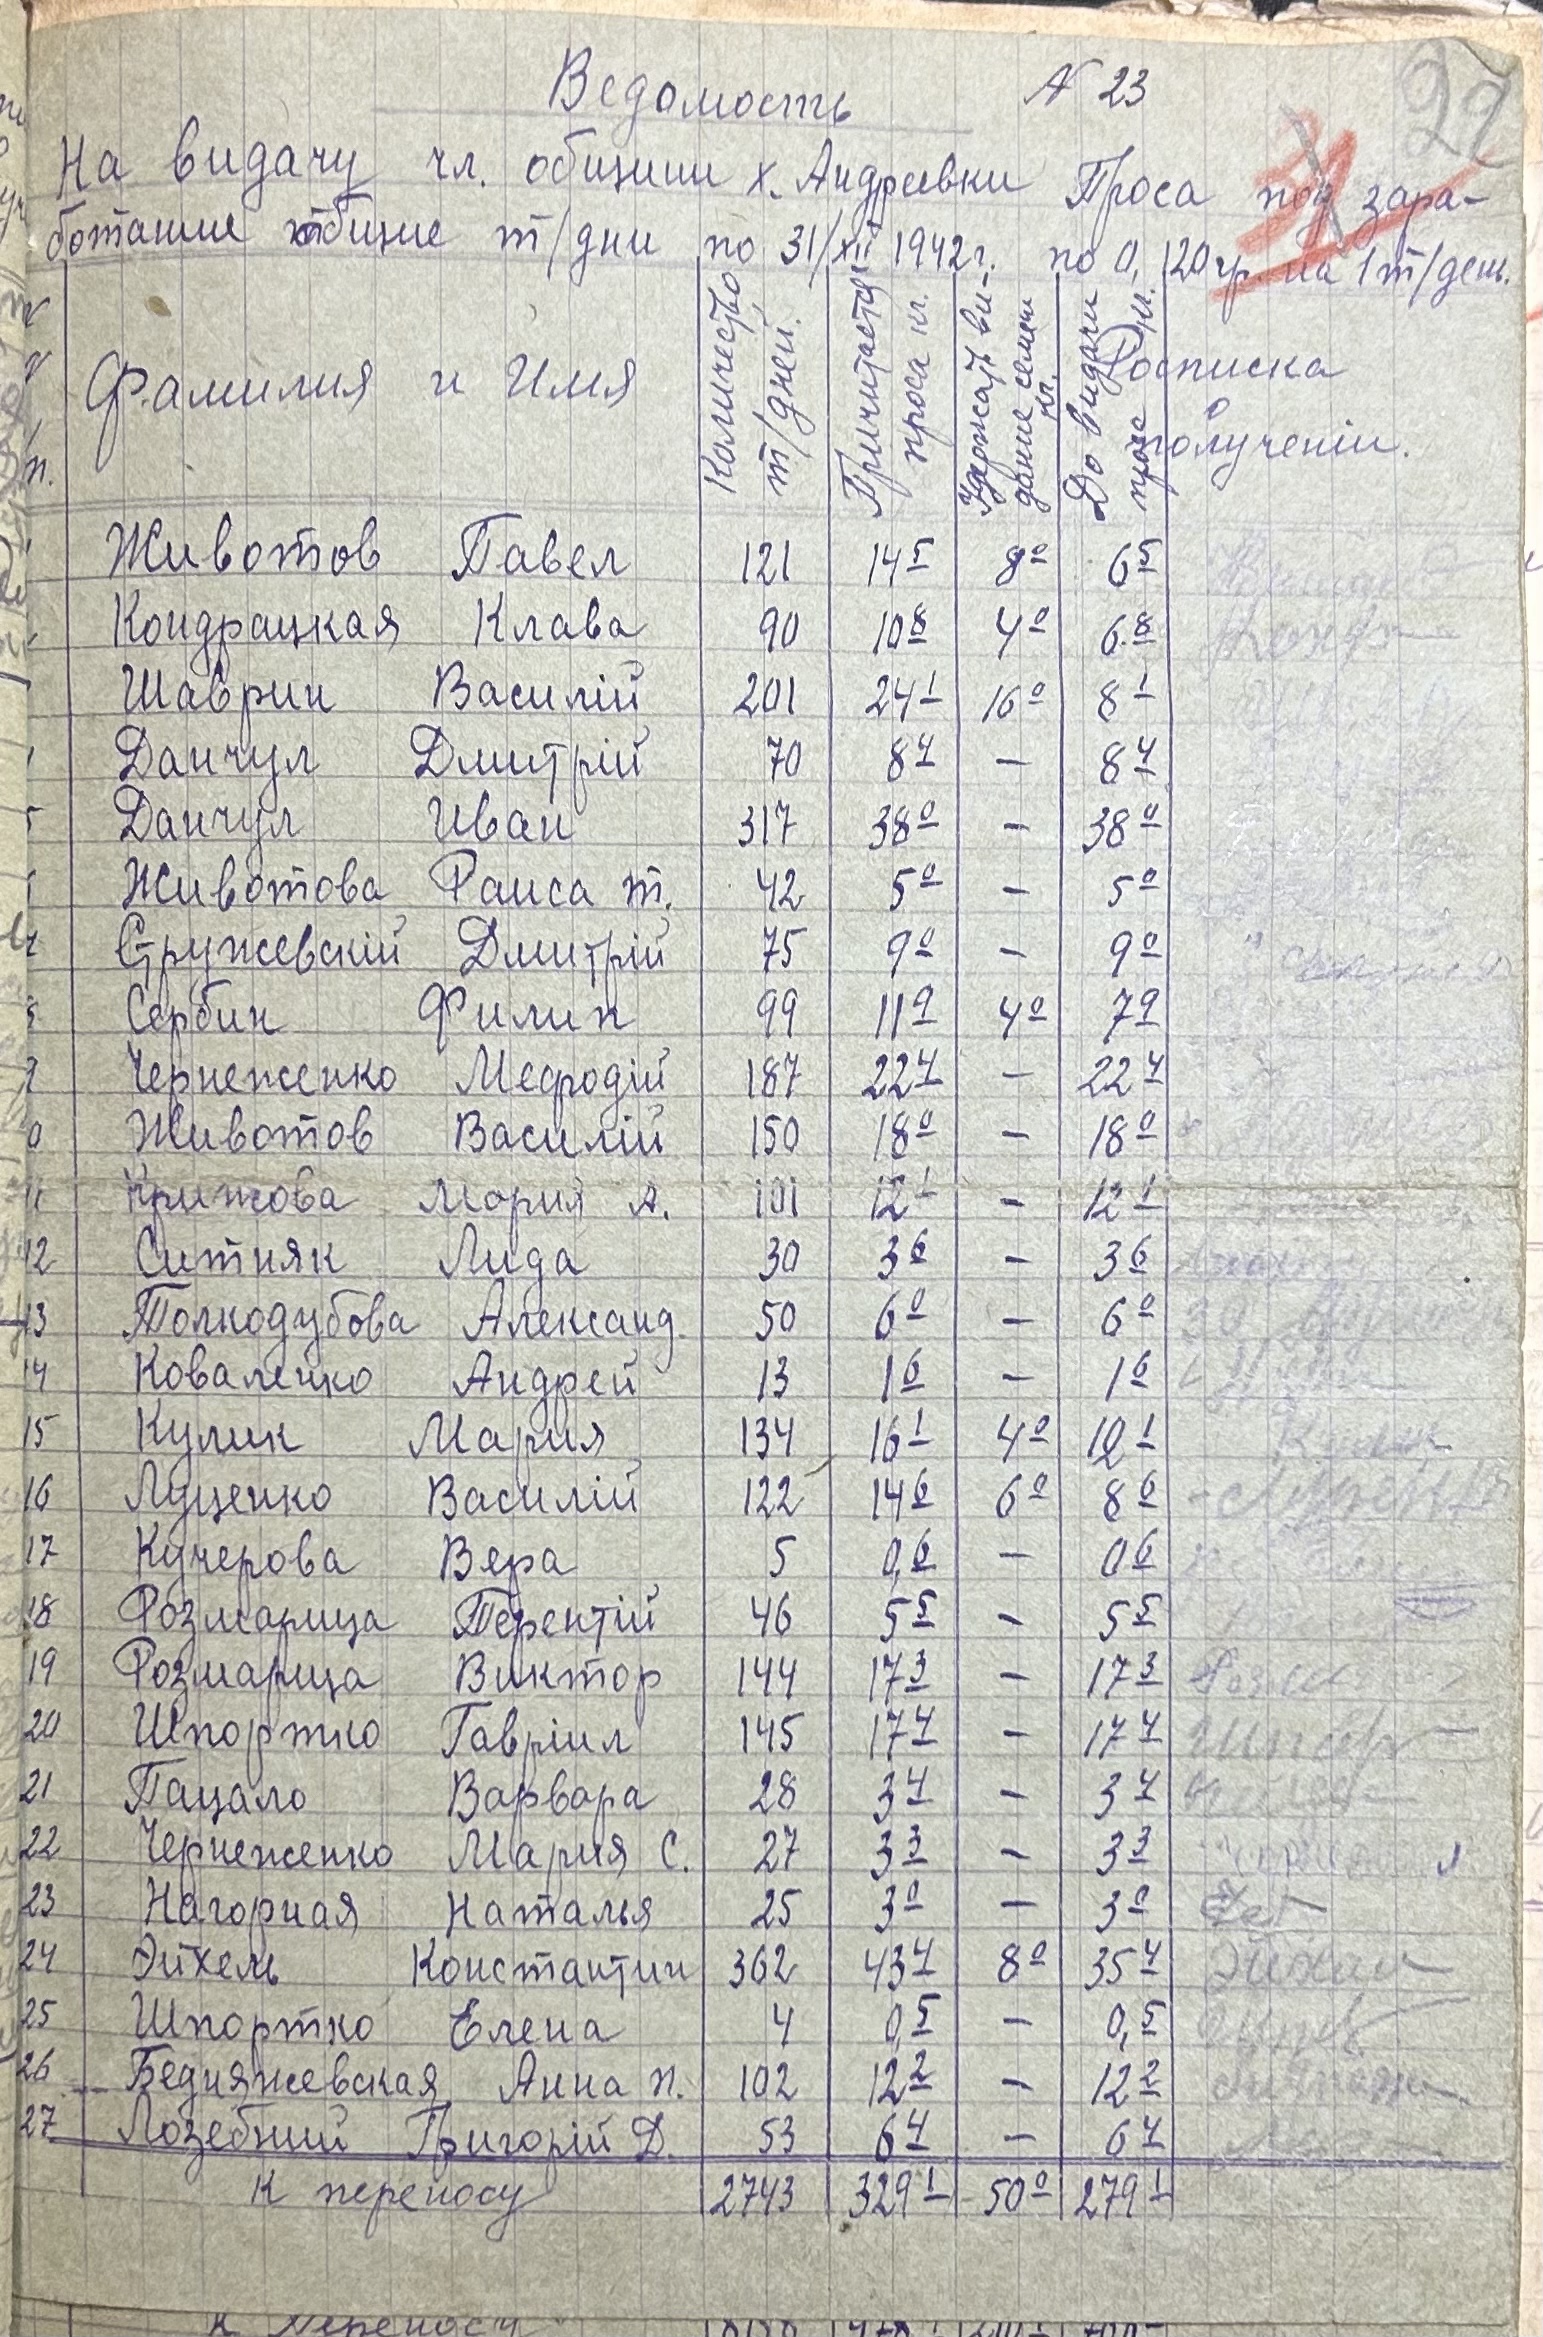 Ведомость № 23
29
На видачу чл. общини х. Андреевки Проса под зара-
ботание общие т/дни по 31/XII 1942 г. по 0,120 гр. на 1 т/день.
Фамилия и Имя Количество т/дней. Причитается проса кг. Удержать ви- дание семени кг. До видачи проса кг. Росписка о получении.
Животов Павел 121 14 5 8 0 6 5
Кондрацкая Клава 90 10 8 4 0 6.8
Шаврин Василій 201 24 1 16 0 8 1
Данчул Дмитрій 70 8 4 — 8 4
5 Данчул Иван 317 38 0 — 38 0
Животова Раиса т. 42 5 0 — 5 0
7 Стружевскій Дмитрій 75 9 0 — 9 0
8 Сербин Филип 99 11 9 4 0 7 9
9 Черненженко Мефодій 187 22 4 — 22 4
0 Животов Василій 150 18 0 — 18 0
11 Крижова Мария А. 101 12 1 — 12 1
12 Ситняк Лида 30 3 6 — 3 6
13 Толкодубова Александ. 50 6 0 — 6 0
14 Коваленко Андрей 13 1 6 — 1 6
15 Кулик Мария 134 16 1 4 0 12 1 Кулик
16 Луценко Василій 122 14 6 6 0 8 6
17 Кучерова Вера 5 0,6 — 0 6
18 Розмарица Терентій 46 5 5 — 5 5
19 Розмарица Виктор 144 17 3 — 17 3 Розм
20 Шпортко Гавріил 145 17 4 — 17 4 Шпор
21 Пацало Варвара 28 3 4 — 3 4
22 Черненженко Мария С. 27 3 3 — 3 3
23 Нагорная Наталья 25 3 0 — 3 0
24 Эйхель Константин 362 43 4 8 0 35 4
25 Шпортко Елена 4 0,5 — 0,5
26 Бедняжевская Анна п. 102 12 2 — 12 2
27 Лозебний Григорій Д. 53 6 4 — 6 4
К переносу 2743 329 1 50 0 279 1
К Переносу